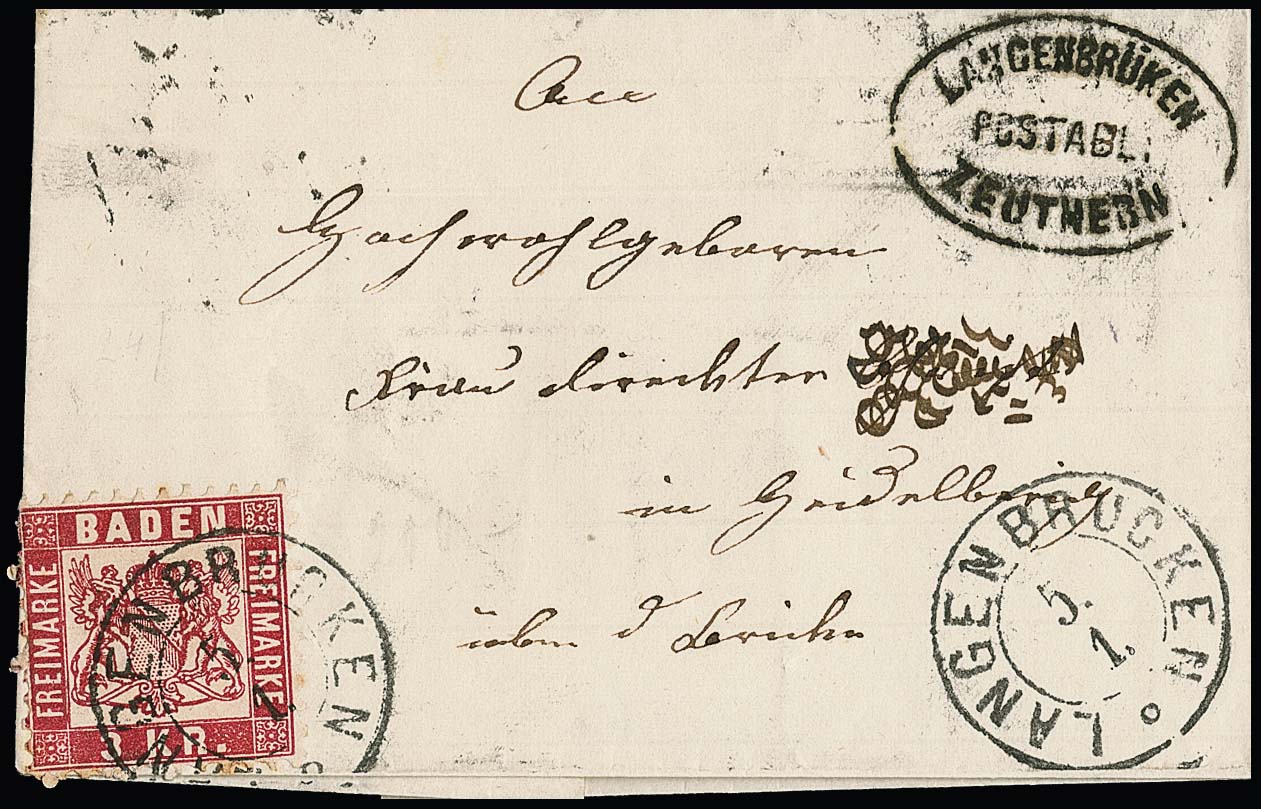 An
LANGENBRÜKEN
POSTABL.
ZEUTHERN
Hochwohlgeboren
Frau Direckter
in Heidelberg
über d Brücke
BADEN
FREIMARKE
FREIMARKE
3 KR.
LANGENBRUCKEN
5.
1.
LANGENBRUCKEN
5.
1.